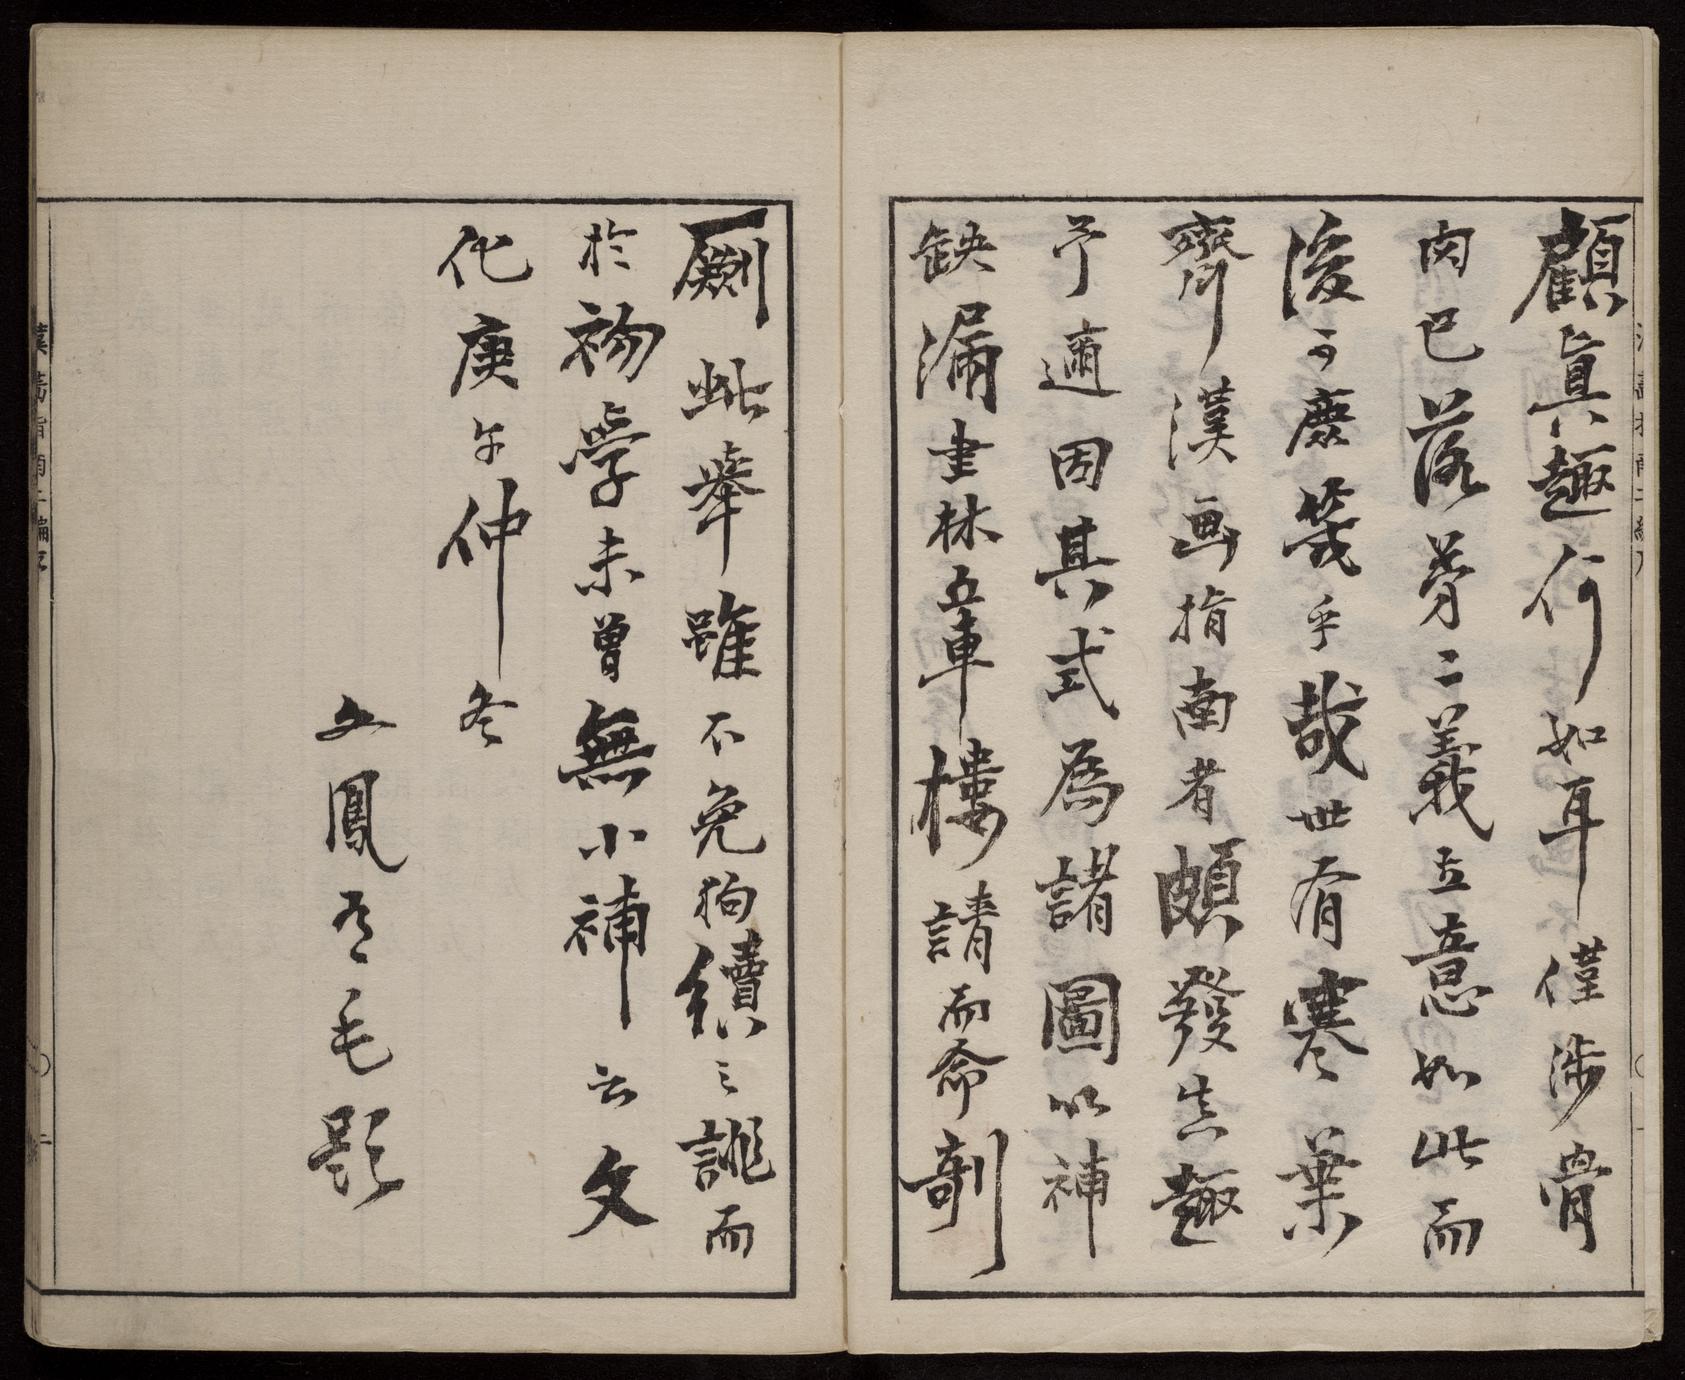 顧眞趣何如耳僅渉骨
肉已落第二義立意如此而
後可庶幾乎哉世有寒葉
齋漢画指南者頗發其趣
予適因其式爲諸圖以補
缺漏書林五車樓請而命剞
劂此舉雖不免狗續之誚而
於初學未曾無小補云文
化庚午仲冬
五鳳毛題
漢畫指南二編序